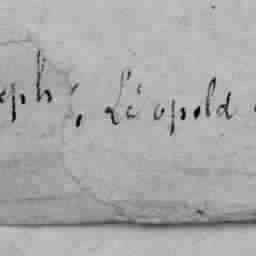 eph, Léopold